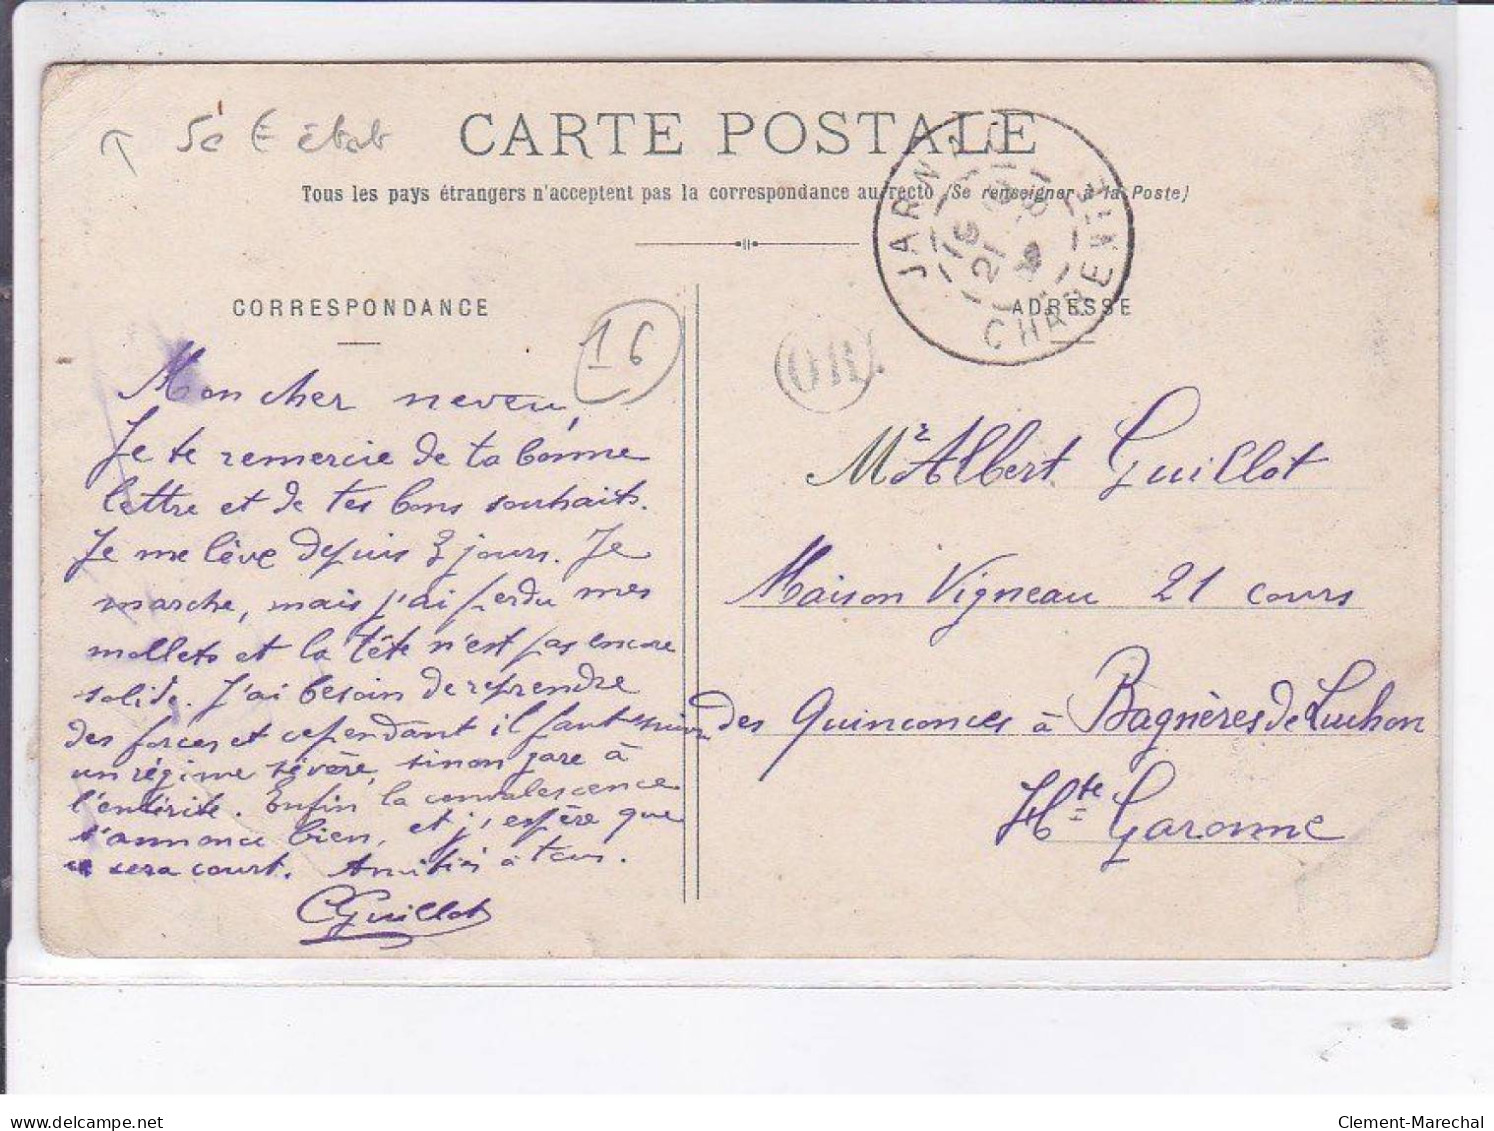 CARTE POSTALE
Tous les pays étrangers n'acceptent pas la correspondance au recto (Se renseigner à la Poste)
CORRESPONDANCE
16
Mon cher neveu,
Je te remercie de ta bonne
lettre et de tes bons souhaits.
Je me lève depuis 3 jours. Je
marche, mais j'ai perdu mes
mollets et la tête n'est pas encore
solide. J'ai besoin de reprendre
des forces et cependant il faut suivre
un régime sévère, sinon gare à
l'entérite. Enfin la convalescence
s'annonce bien, et j'espère que
sera court. Amitiés à tous.
CGuillot
JARNAC
CHARENTE
OR
ADRESSE
Mr Albert Guillot
Maison Vigneau 21 cours
des Quinconces à Bagnères de Luchon
Hte Garonne
delcampe.net
Clement-Marechal